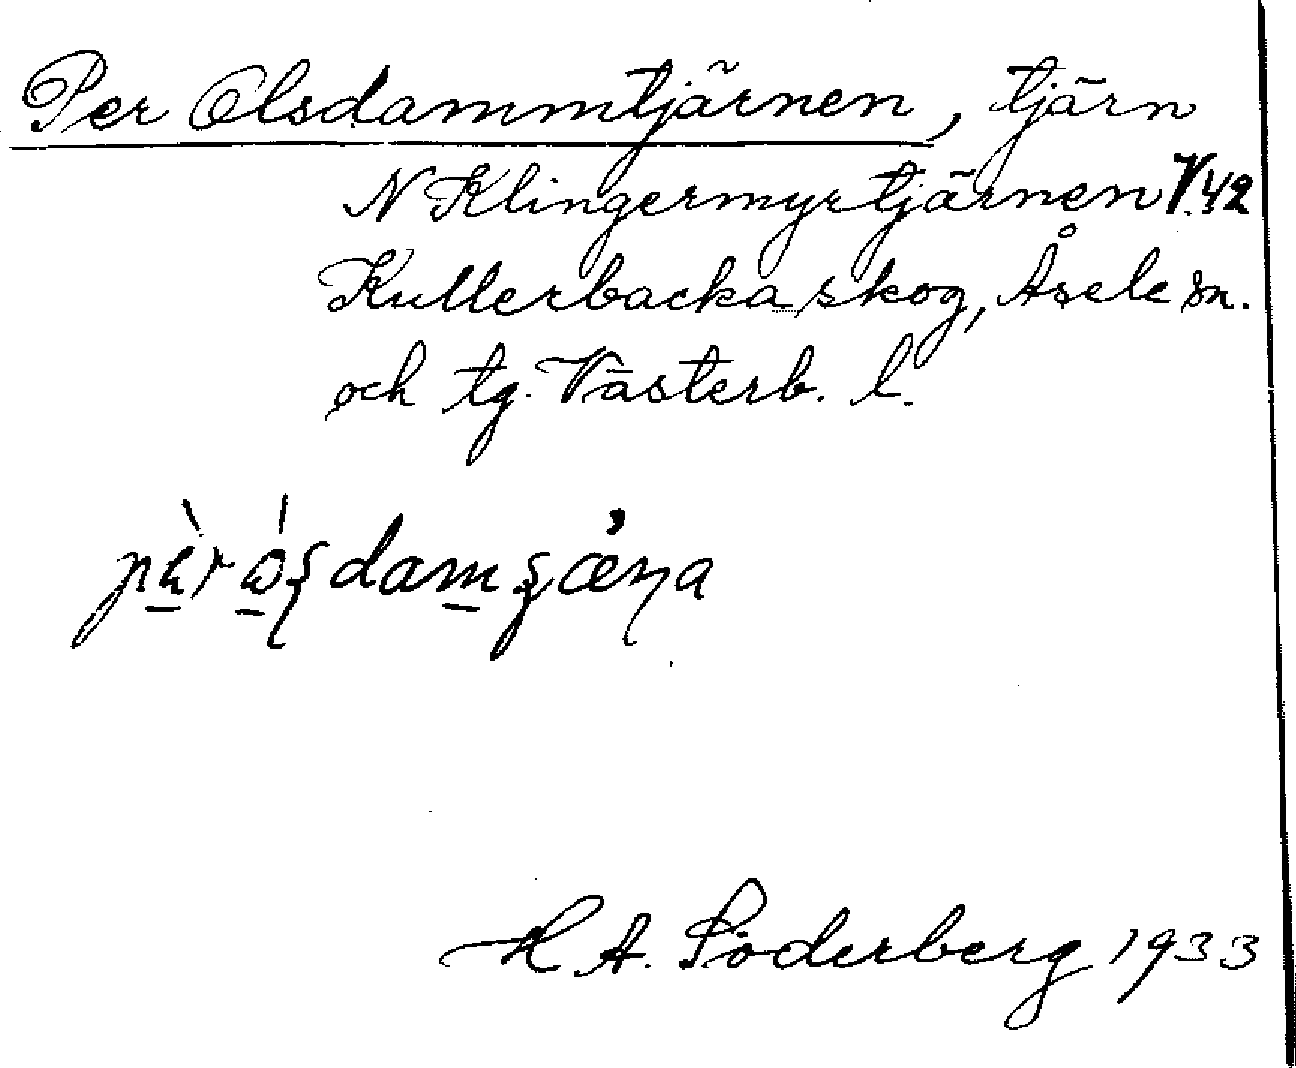 Per Olsdammtjärnen, tjärn
N Klingermyrtjärnen V.42
Kullerbacka skog, Åsele sn.
och tg. Västerb. l.
H A. Söderberg 1933